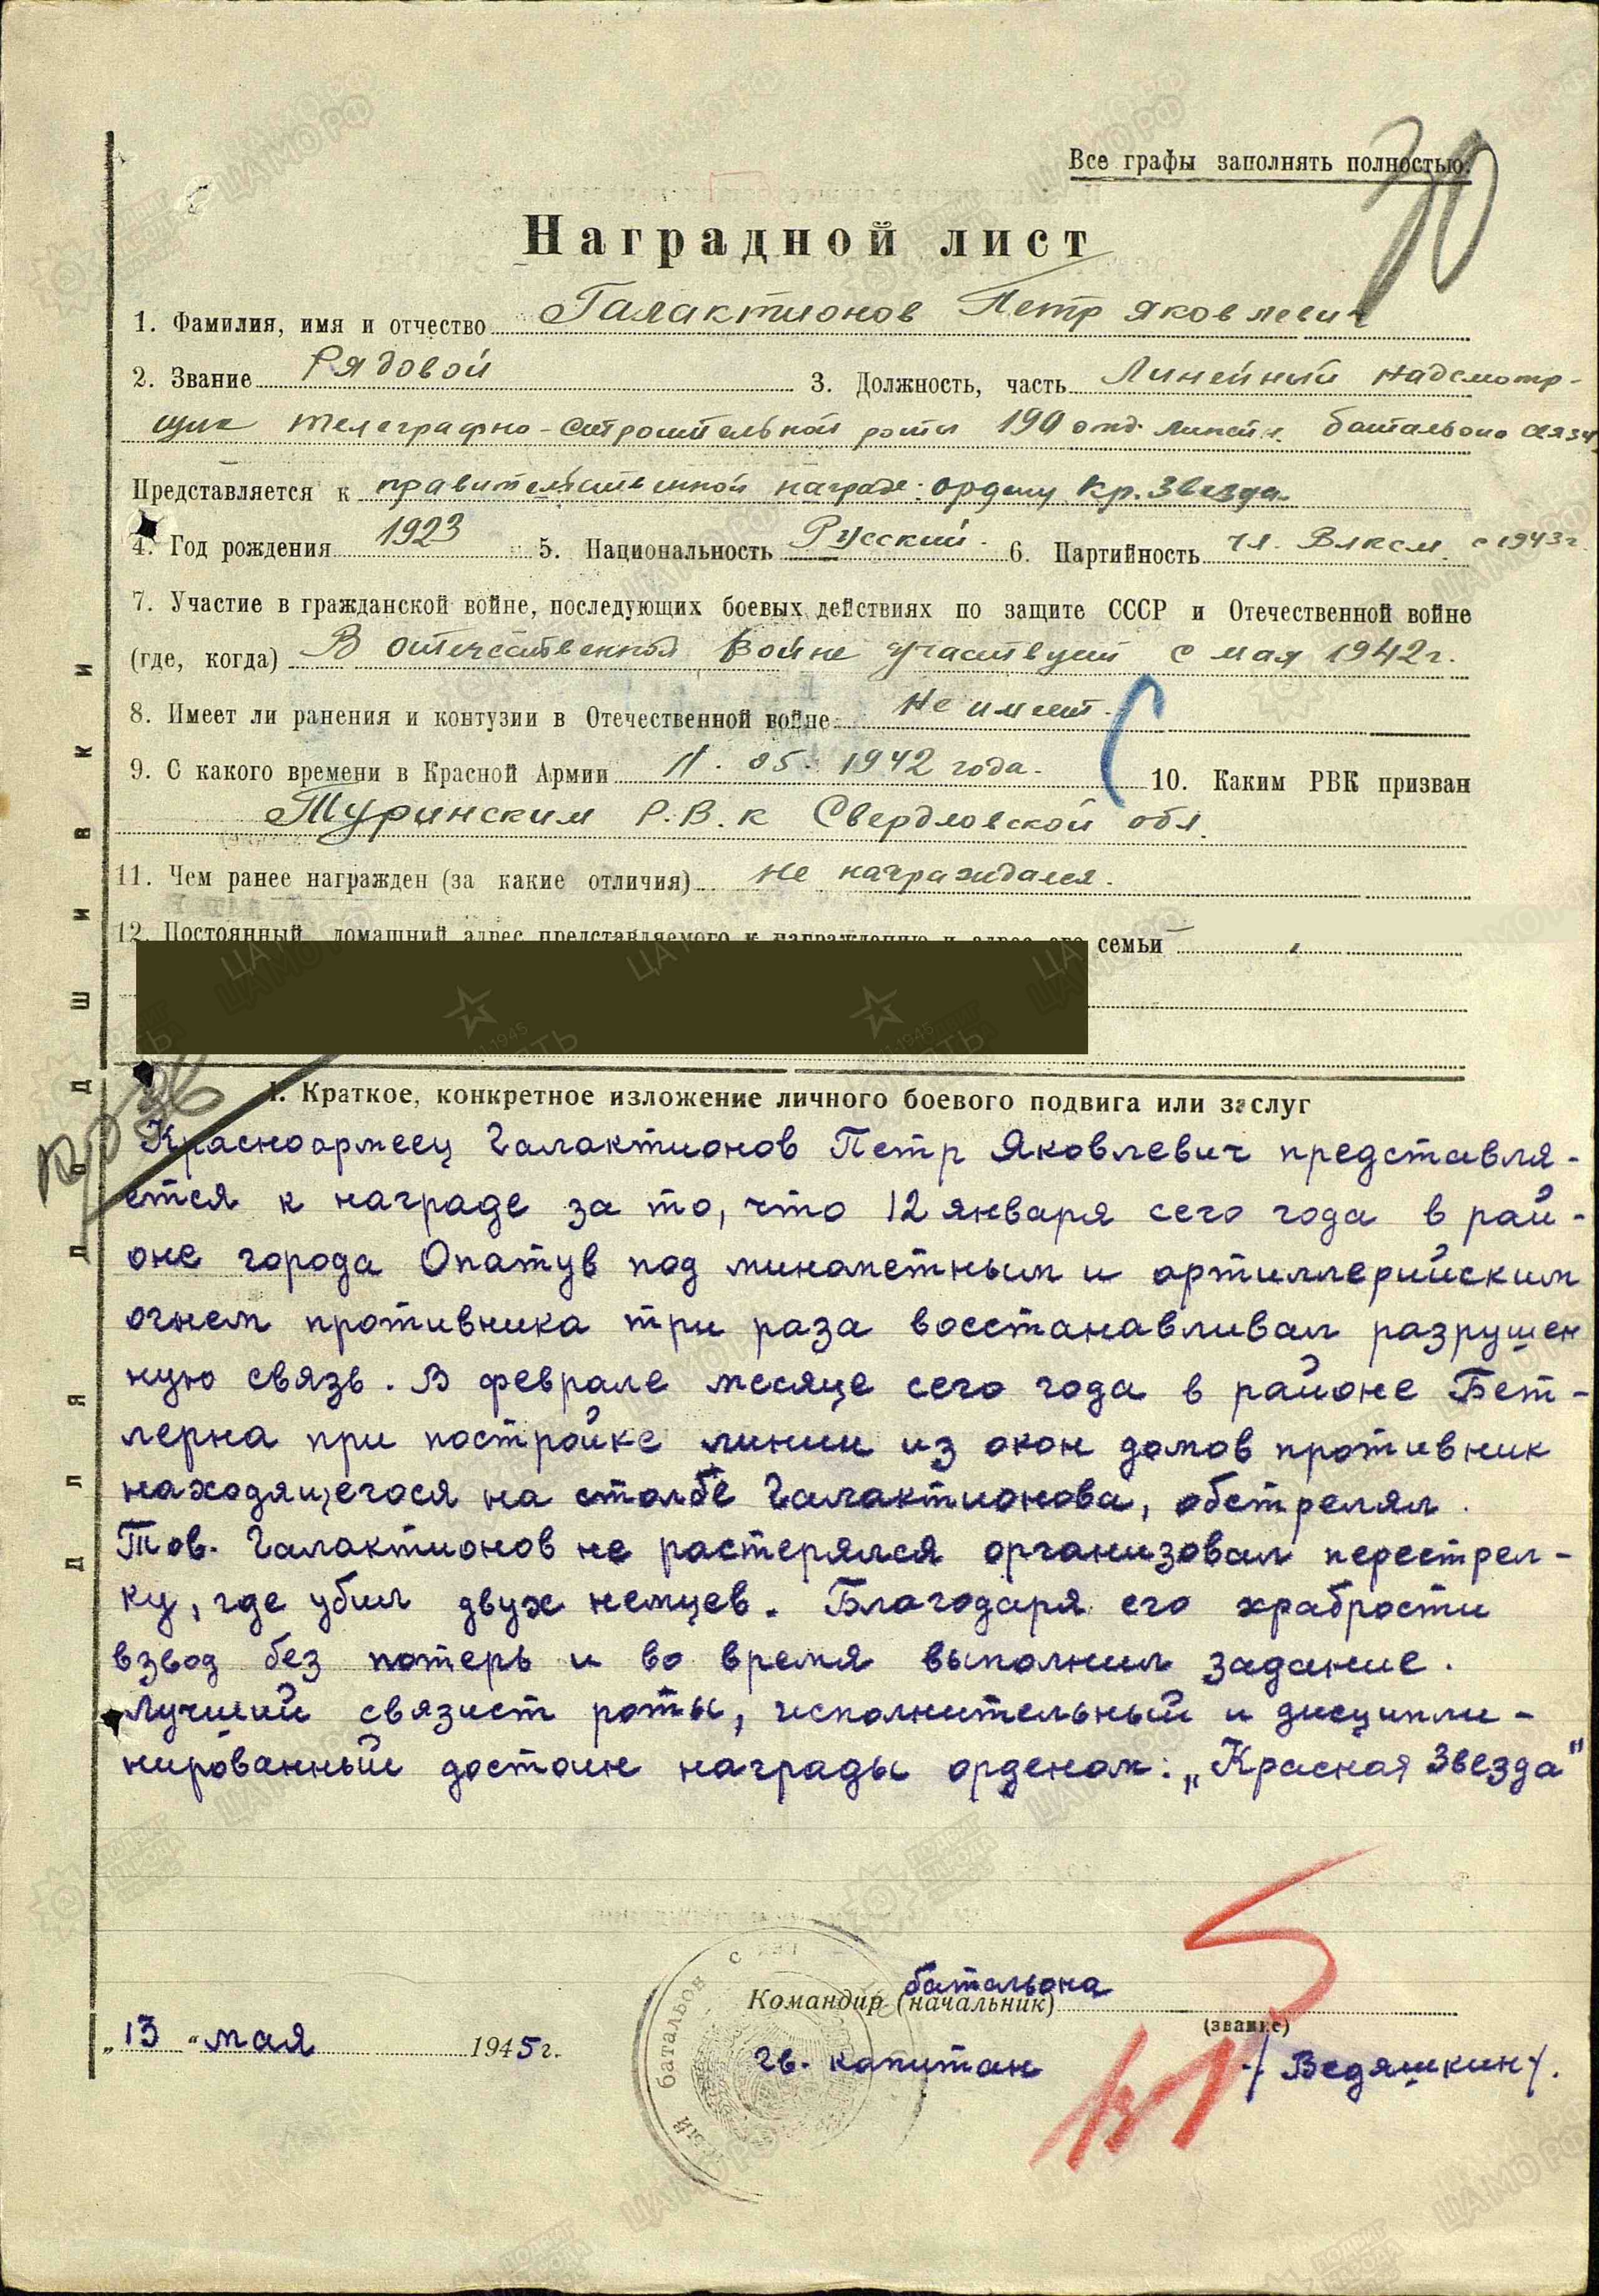 Все графы заполнять полностью.
70
Наградной лист
1. Фамилия, имя и отчество Галактионов Петр Яковлевич
2. Звание Рядовой 3. Должность, часть Линейный надсмотр-
щик телеграфно-строительной роты 190 отд. линейн. батальона связи
Представляется к правительственной награде: ордену Кр. Звезда.
4. Год рождения 1923 5. Национальность Русский. 6. Партийность чл. Влксм. с 1943г.
7. Участие в гражданской войне, последующих боевых действиях по защите СССР и Отечественной войне
(где, когда) В отечественной войне участвует с мая 1942г.
8. Имеет ли ранения и контузии в Отечественной войне Не имеет.
9. С какого времени в Красной Армии 11. 05. 1942 года. 10. Каким РВК призван
Туринским Р.В.К Свердловской обл.
11. Чем ранее награжден (за какие отличия) Не награждался.
12. Постоянный домашний адрес представляемого к награждению и адрес его семьи
Для подшивки
1. Краткое, конкретное изложение личного боевого подвига или заслуг
Красноармеец Галактионов Петр Яковлевич представля-
ется к награде за то, что 12 января сего года в рай-
оне города Опатув под минометным и артиллерийским
огнем противника три раза восстанавливал разрушен
ную связь. В феврале месяце сего года в районе Бет-
лерна при постройке линии из окон домов противник
находящегося на столбе Галактионова, обстрелял.
Тов. Галактионов не растерялся организовал перестрел-
ку, где убил двух немцев. Благодаря его храбрости
взвод без потерь и во время выполнил задание.
Лучший связист роты, исполнительный и дисципли-
нированный достоин награды орденом: „Красная Звезда"
Командир (начальник) батальона
(звание)
„13" мая 1945 г.
гв. капитан /Ведяшкин/.
батальон связи